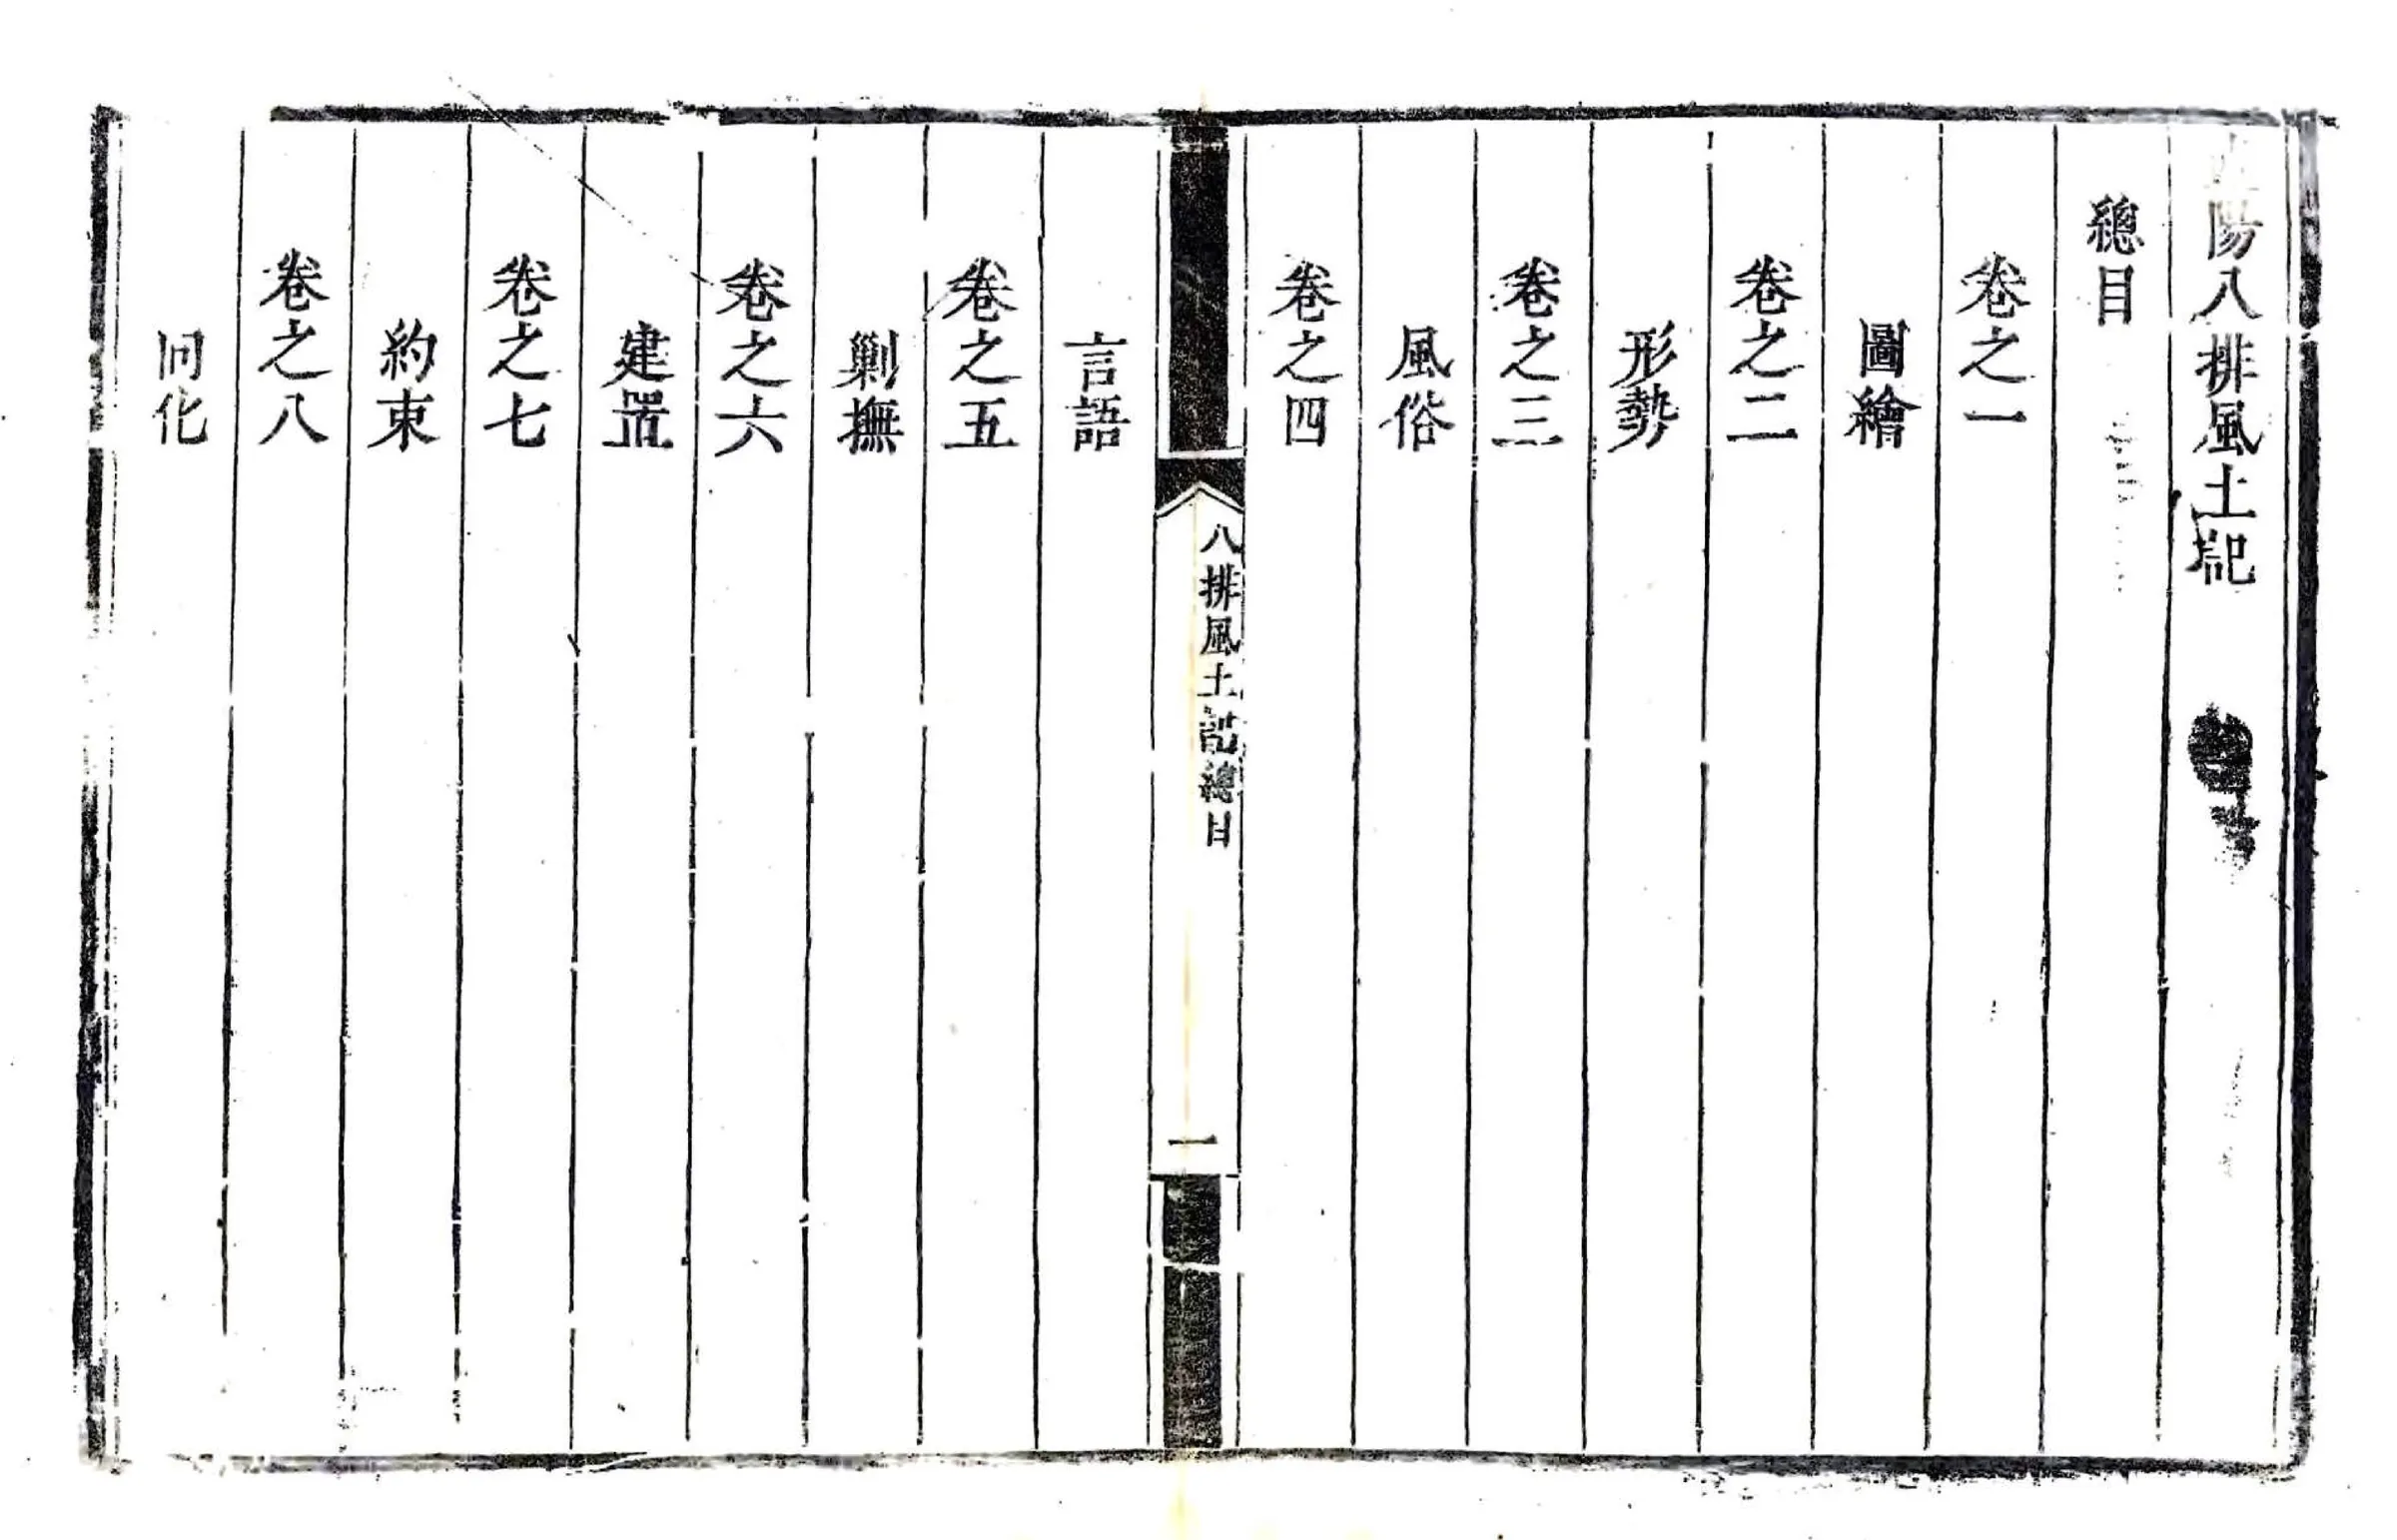 連陽八排風土記
總目
卷之一
圖繪
卷之二
形勢
卷之三
風俗
卷之四
八排風土記總目
一
言語
卷之五
剿撫
卷之六
建置
卷之七
約束
卷之八
向化